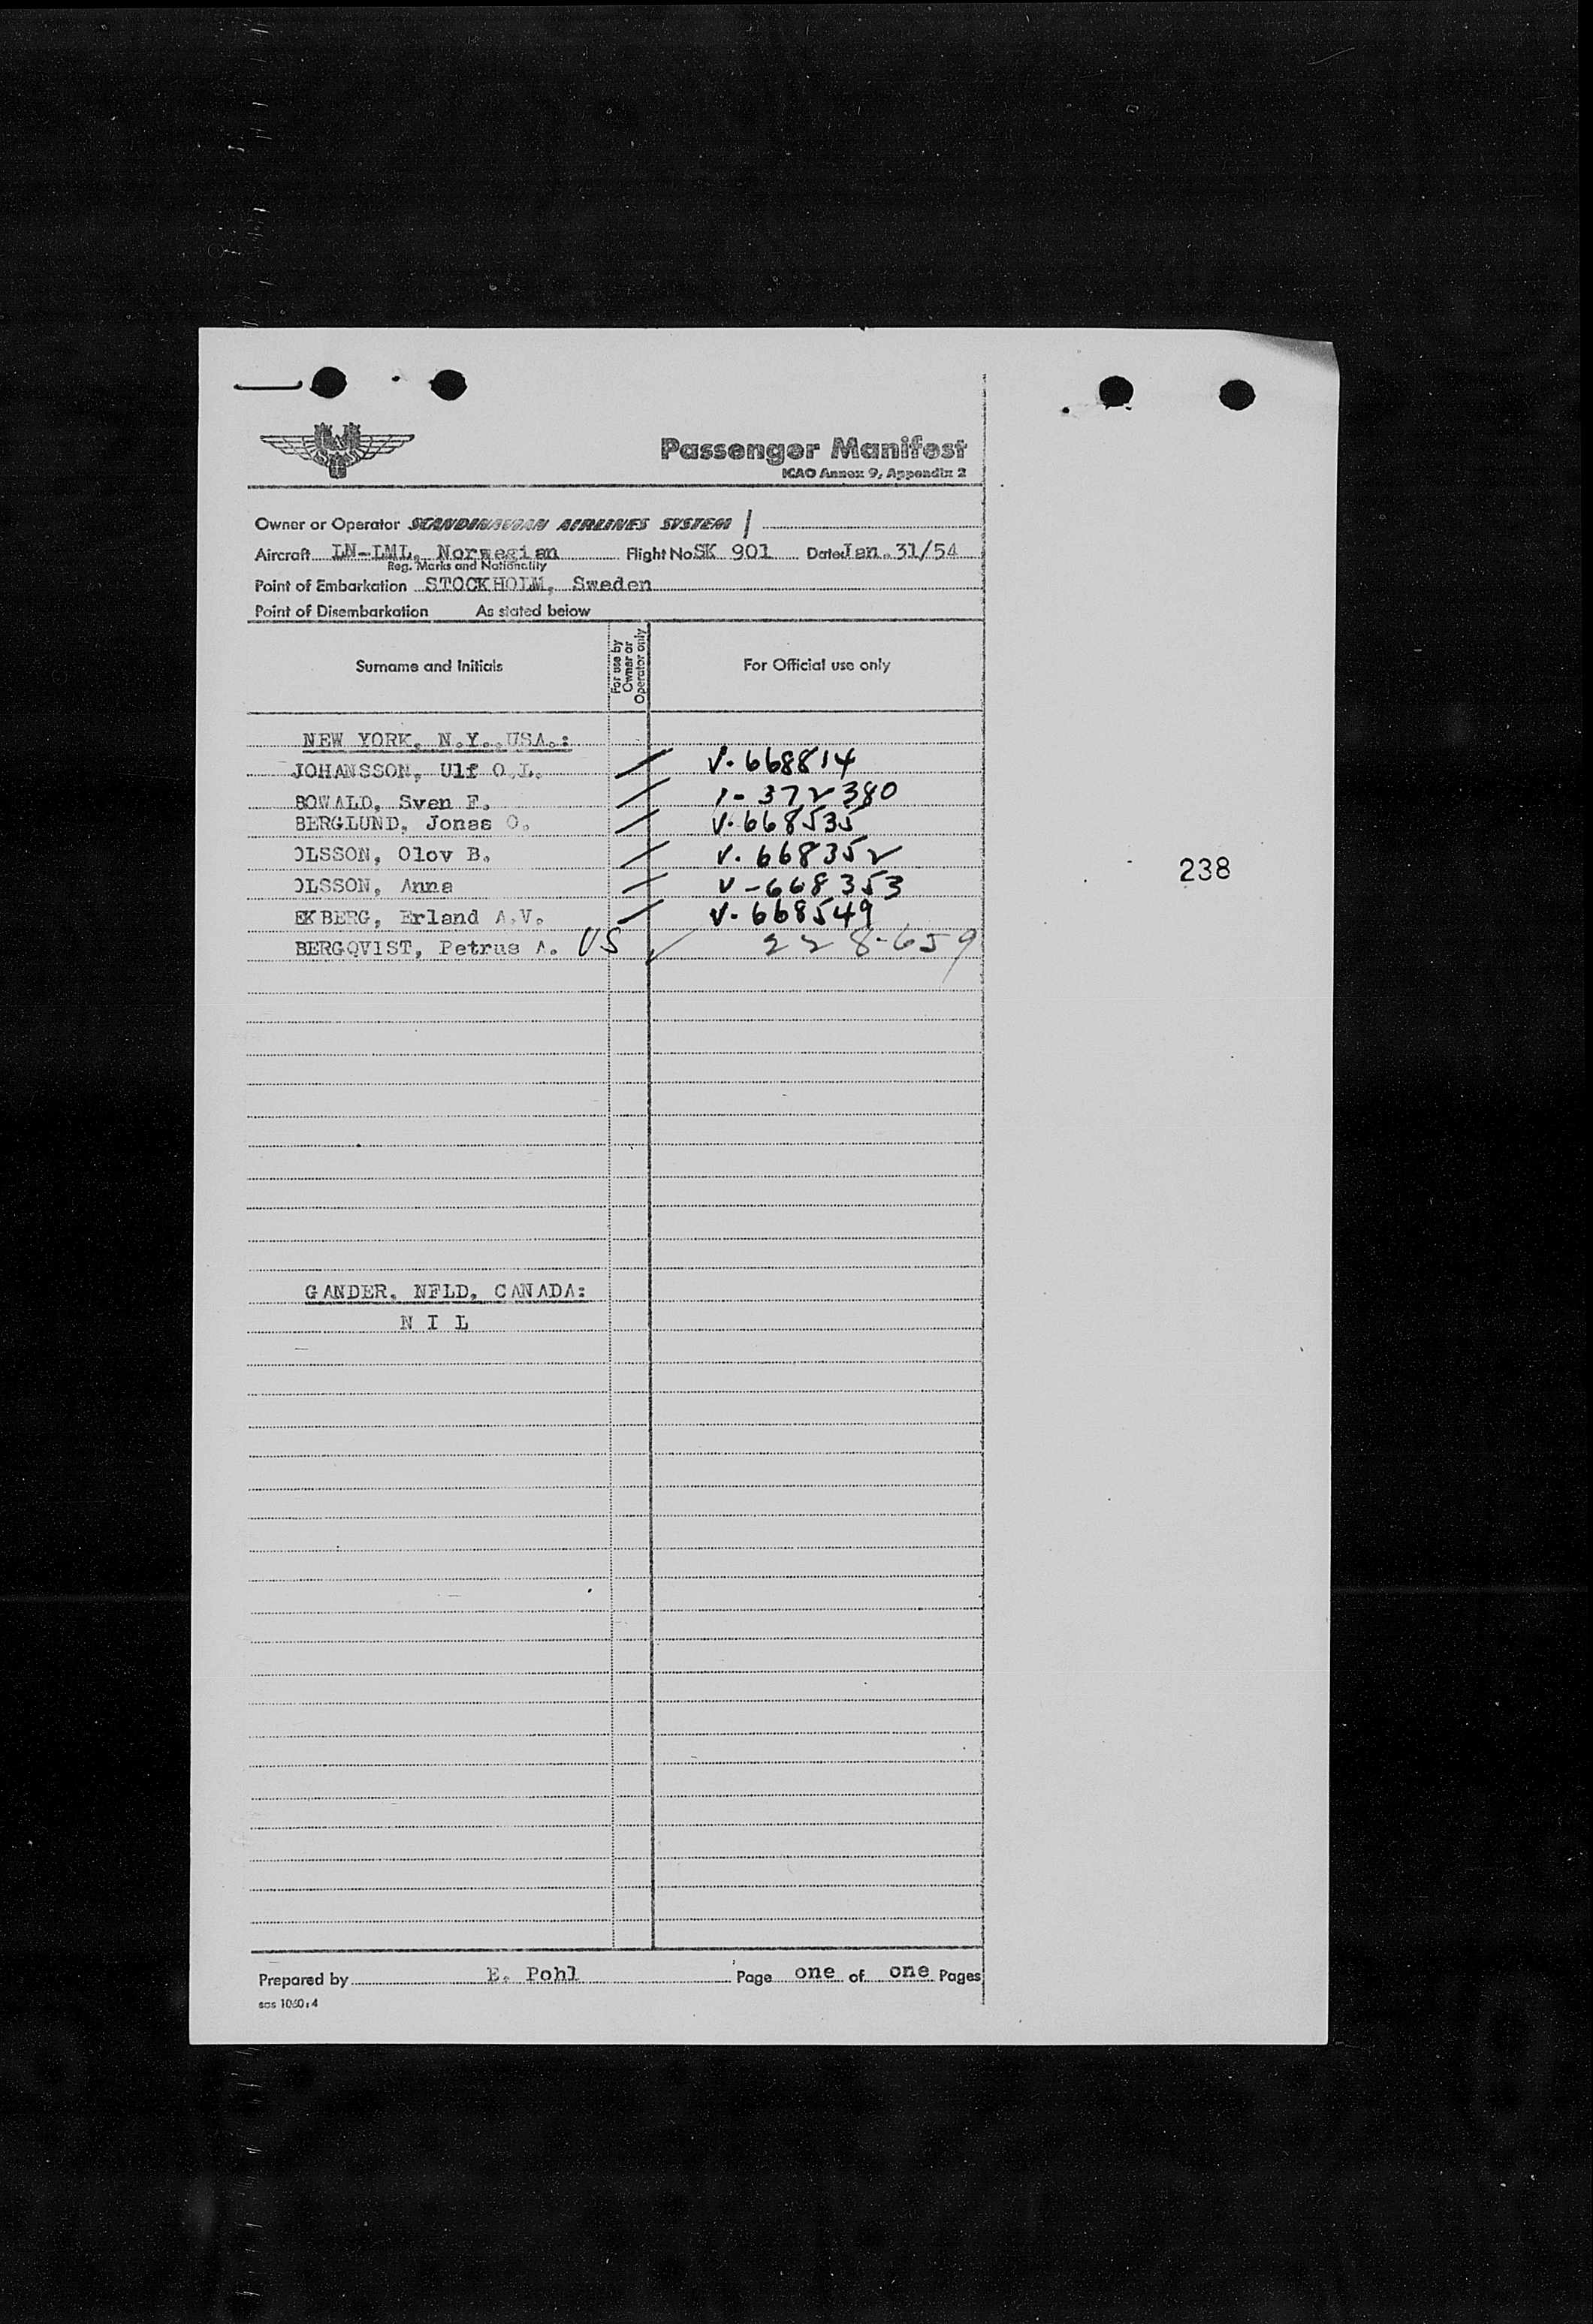 Passenger Manifest
ICAO Annex 9, Appendix 2
Owner or Operator SCANDINAVIAN AIRLINES SYSTEM /
Aircraft LN-LML, Norwegian Flight No SK 901 Date Jan.31/54
Reg. Marks and Nationality
Point of Embarkation STOCKHOLM, Sweden
Point of Disembarkation As stated below
Surname and Initials For use by Owner or Operator only For Official use only
NEW YORK, N.Y. USA.:
JOHANSSON, Ulf O.L. V-668814
BOWALD, Sven F. 1-372380
BERGLUND, Jonas O. V-668535
OLSSON, Olov B. V-668352
238
OLSSON, Anna V-668353
EKBERG, Erland A.V. V-668549
BERGQVIST, Petrus A. US 228-659
GANDER, NFLD, CANADA:
N I L
Prepared by E. Pohl Page one of one Pages
sas 1060:4